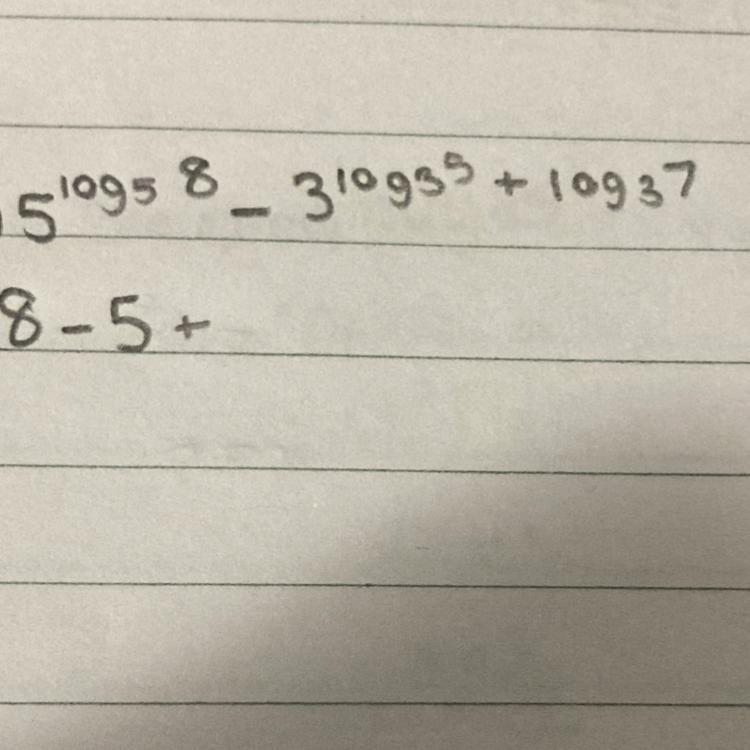 5^log₅ 8 - 3^log₃5 + log₃7
8 - 5 +